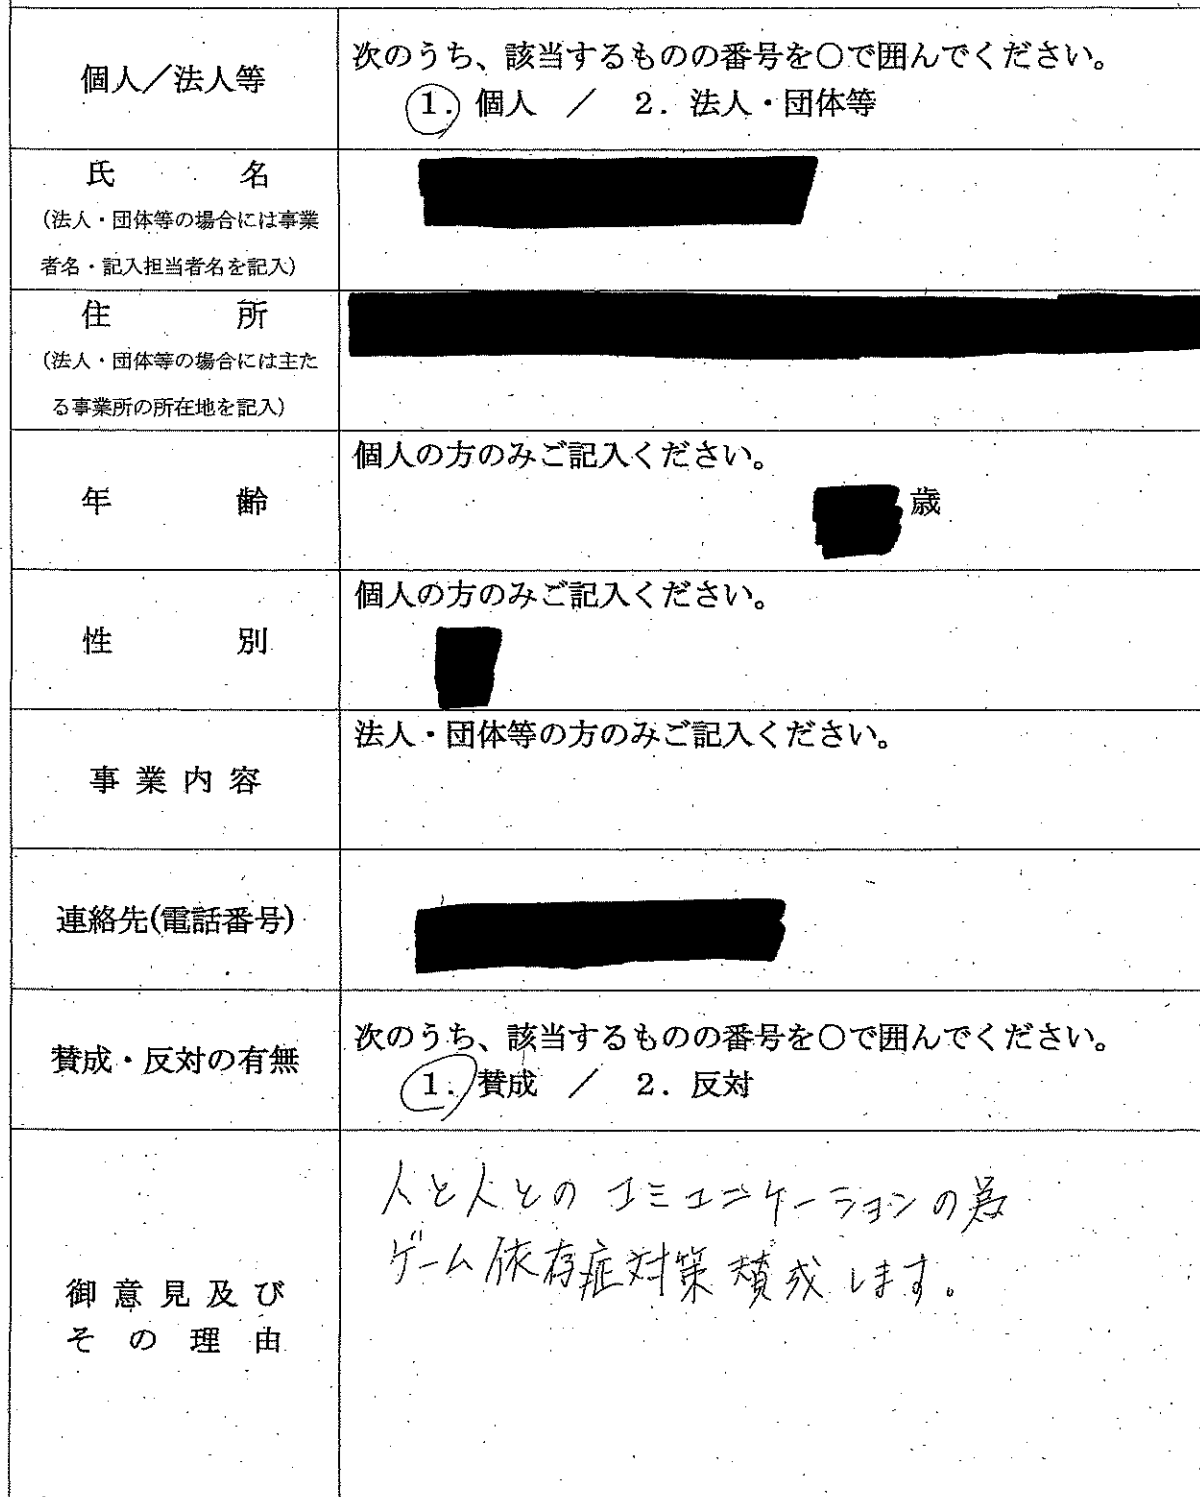 個人／法人等
次のうち、該当するものの番号を〇で囲んでください。
１．個人　／　２．法人・団体等
氏名
（法人・団体等の場合には事業
者名・記入担当者名を記入）
住所
（法人・団体等の場合には主た
る事業所の所在地を記入）
年齢
個人の方のみご記入ください。
歳
性別
個人の方のみご記入ください。
事業内容
法人・団体等の方のみご記入ください。
連絡先(電話番号)
賛成・反対の有無
次のうち、該当するものの番号を〇で囲んでください。
１．賛成　／　２．反対
御意見及び
その理由
人と人とのコミュニケーションの為
ゲーム依存症対策賛成します。